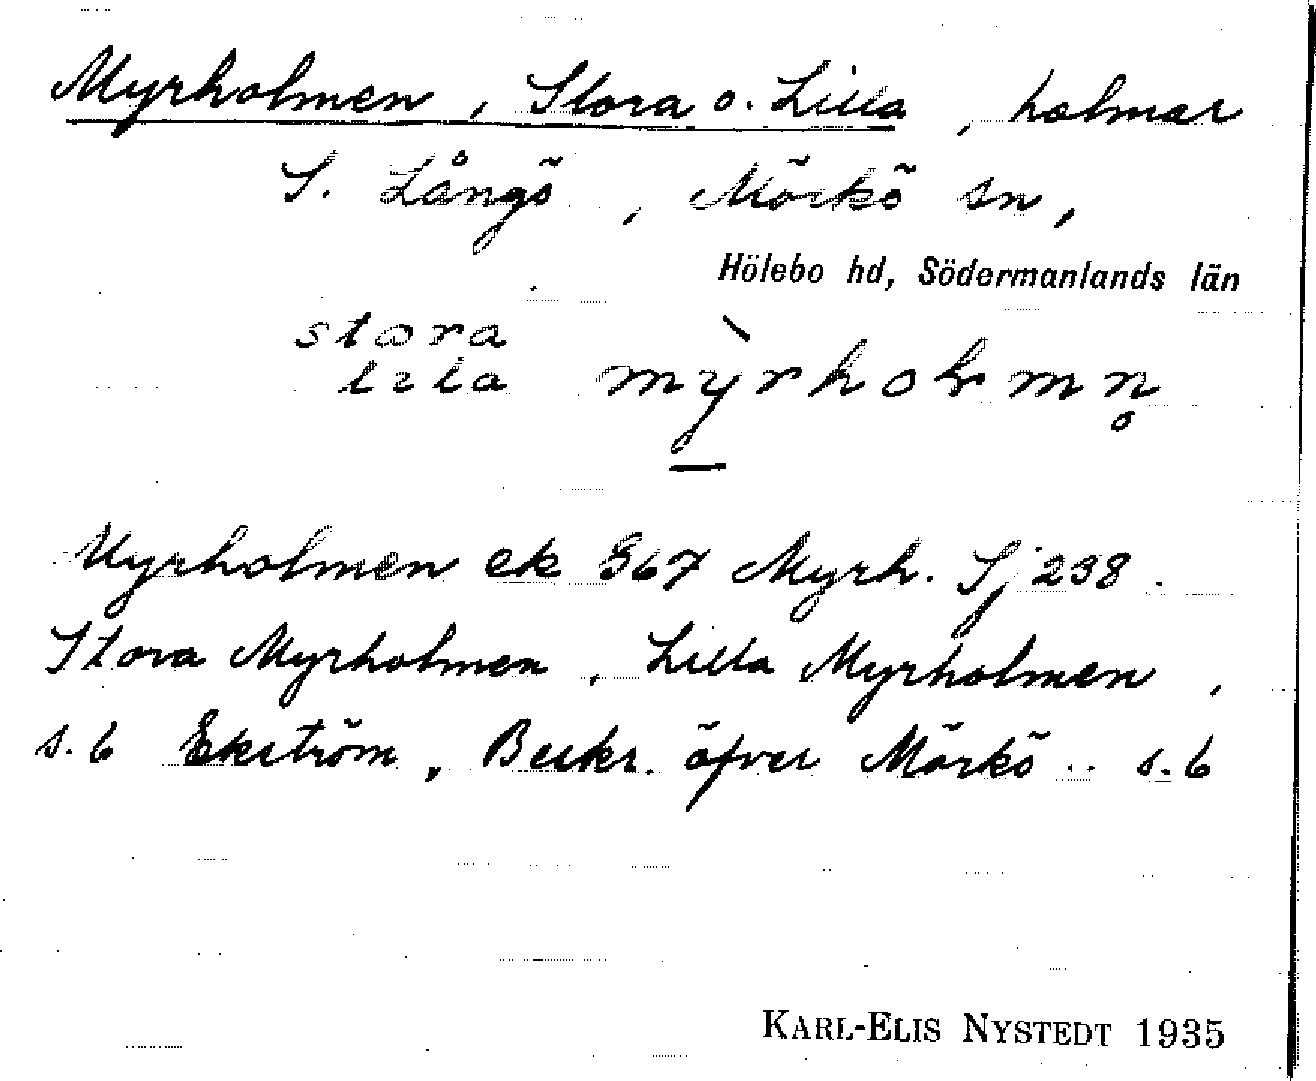 Myrholmen, Stora o. Lilla, holmar
S. Långö, Mörkö sn,
Hölebo hd, Södermanlands län
stora
lila mỳrholmn̥
Myrholmen ek 367 Myrh. Sj 238.
Stora Myrholmen, Lilla Myrholmen,
s. 6 Ekström, Beskr. öfver Mörkö .. s. 6
KARL-ELIS NYSTEDT 1935